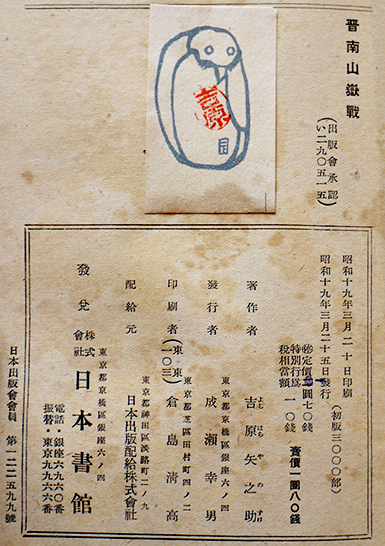 晋南山嶽戰
(出版會承認
い二九〇五一五)
吉原
昭和十九年三月二十日印刷
昭和十九年三月二十五日發行
(初版三〇〇〇部)
定價 圓七〇錢
特別行爲稅相當額 一〇錢
賣價一圓八〇錢
著作者 吉原矢之助
よしはらやのすけ
東京都京橋區銀座六ノ四
發行者 成瀬幸男
東京都芝區田村町四ノ二
印刷者 (東東一〇三) 倉島清高
東京都神田區淡路町二ノ九
配給元 日本出版配給株式會社
東京都京橋區銀座六ノ四
發兌 株式會社 日本書館
電話・銀座六九六〇番
振替・東京九九六六番
日本出版會會員 第一二二五九九號